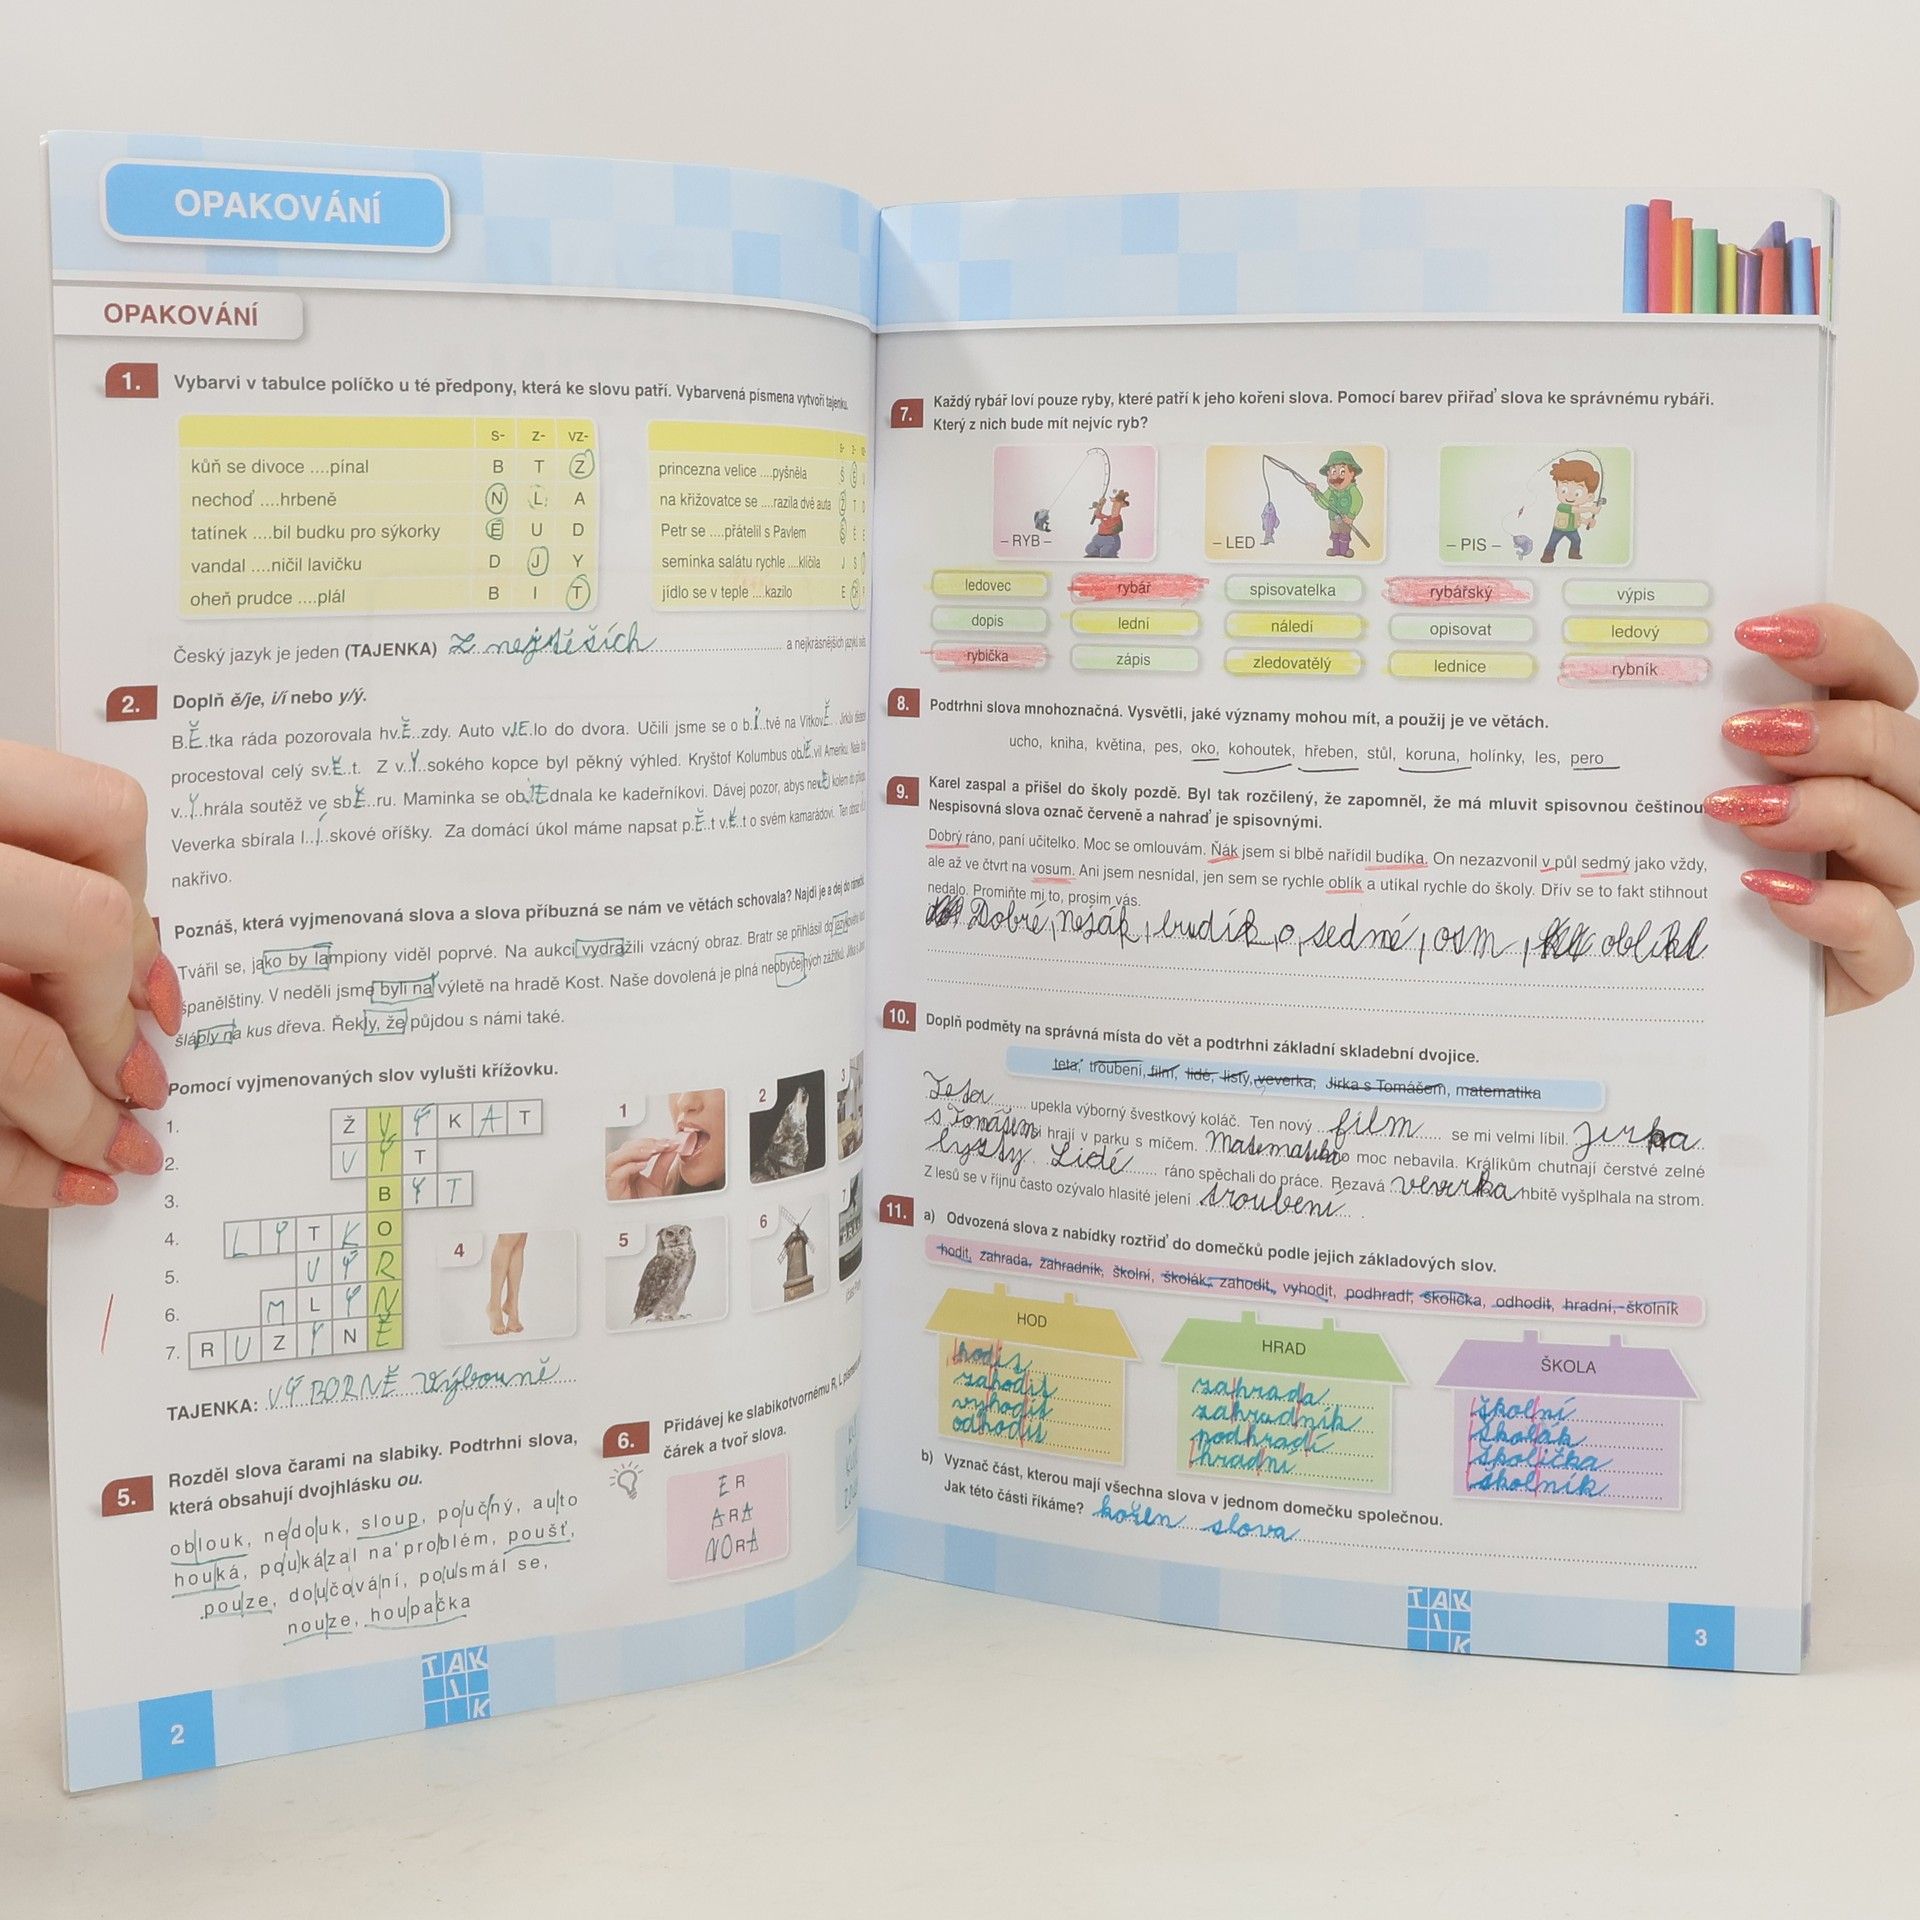 OPAKOVÁNÍ
OPAKOVÁNÍ
1. Vybarvi v tabulce políčko u té předpony, která ke slovu patří. Vybarvená písmena vytvoří tajenku.
s- z- vz-
kůň se divoce ....pínal B T Z
nechoď ....hrbeně N L A
tatínek ....bil budku pro sýkorky E U D
vandal ....ničil lavičku D J Y
oheň prudce ....plál B I T
princezna velice ....pyšněla
na křižovatce se ....razila dvě auta
Petr se ....přátelil s Pavlem
semínka salátu rychle ....klíčila
jídlo se v teple ....kazilo
Český jazyk je jeden (TAJENKA) a nejkrásnějších jazyků
2. Doplň ě/je, i/í nebo y/ý.
B.Ě..tka ráda pozorovala hv.Ě..zdy. Auto v.JE.lo do dvora. Učili jsme se o b.I.tvě na Vítkov.Ě..
procestoval celý sv.Ě..t. Z v..Y..sokého kopce byl pěkný výhled. Kryštof Kolumbus ob.JE.vil Ameriku.
v..Y..hrála soutěž ve sb.Ě..ru. Maminka se ob.JE.dnala ke kadeřníkovi. Dávej pozor, abys
Veverka sbírala l..Í..skové oříšky. Za domácí úkol máme napsat p.Ě..t v.Ě..t o svém kamarádovi. Ten obraz
nakřivo.
Poznáš, která vyjmenovaná slova a slova příbuzná se nám ve větách schovala? Najdi je a dej do rámečků.
Tvářil se, jako by lampiony viděl poprvé. Na aukci vydražili vzácný obraz. Bratr se přihlásil do
španělštiny. V neděli jsme byli na výletě na hradě Kost. Naše dovolená je plná neobyčejných zážitků.
šláply na kus dřeva. Řekly, že půjdou s námi také.
Pomocí vyjmenovaných slov vylušti křížovku.
1. Ž V Ý K A T
2. V Ý T
3. B Ý T
4. L Ý T K O
5. V Ý R
6. M L Ý N
7. R U Z Y N Ě
1 2 3
4 5 6 7
TAJENKA: VÝBORNĚ
5. Rozděl slova čarami na slabiky. Podtrhni slova,
která obsahují dvojhlásku ou.
oblouk, nedouk, sloup, poučný, auto
houká, poukázal na problém, poušť,
pouze, doučování, pousmál se,
nouze, houpačka
6. Přidávej ke slabikotvornému R, L
čárek a tvoř slova.
ER
ARA
NORA
TAK
I
K
2
7. Každý rybář loví pouze ryby, které patří k jeho kořeni slova. Pomocí barev přiřaď slova ke správnému rybáři.
Který z nich bude mít nejvíc ryb?
– RYB – – LED – – PIS –
ledovec rybář spisovatelka rybářský výpis
dopis lední náledí opisovat ledový
rybička zápis zledovatělý lednice rybník
8. Podtrhni slova mnohoznačná. Vysvětli, jaké významy mohou mít, a použij je ve větách.
ucho, kniha, květina, pes, oko, kohoutek, hřeben, stůl, koruna, holínky, les, pero
9. Karel zaspal a přišel do školy pozdě. Byl tak rozčilený, že zapomněl, že má mluvit spisovnou češtinou.
Nespisovná slova označ červeně a nahraď je spisovnými.
Dobrý ráno, paní učitelko. Moc se omlouvám. Ňák jsem si blbě nařídil budíka. On nezazvonil v půl sedmý jako vždy,
ale až ve čtvrt na vosum. Ani jsem nesnídal, jen sem se rychle oblík a utíkal rychle do školy. Dřív se to fakt stihnout
nedalo. Promiňte mi to, prosim vás.
Dobré, nesák, budík, o, sedmé, osm, oblékl
10. Doplň podměty na správná místa do vět a podtrhni základní skladební dvojice.
teta, troubení, film, lidé, listy, veverka, Jirka s Tomášem, matematika
Teta upekla výborný švestkový koláč. Ten nový film se mi velmi líbil. Jirka
s Tomášem si hrají v parku s míčem. Matematika ho moc nebavila. Králíkům chutnají čerstvé zelné
lysty. Lidé ráno spěchali do práce. Rezavá veverka hbitě vyšplhala na strom.
Z lesů se v říjnu často ozývalo hlasité jelení troubení.
11. a) Odvozená slova z nabídky roztřiď do domečků podle jejich základových slov.
hodit, zahrada, zahradník, školní, školák, zahodit, vyhodit, podhradí, školička, odhodit, hradní, školník
HOD HRAD ŠKOLA
hodit zahrada školní
zahodit zahradník školák
vyhodit podhradí školička
odhodit hradní školník
b) Vyznač část, kterou mají všechna slova v jednom domečku společnou.
Jak této části říkáme? kořen slova
TAK
I
K
3